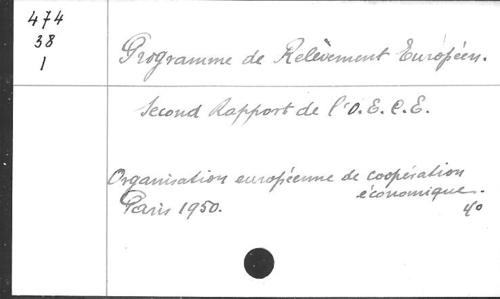 474
38
1
Programme de Relèvement Européen.
Second Rapport de l'O.E.C.E.
Organisation européenne de coopération
économique.
Paris 1950.
4o